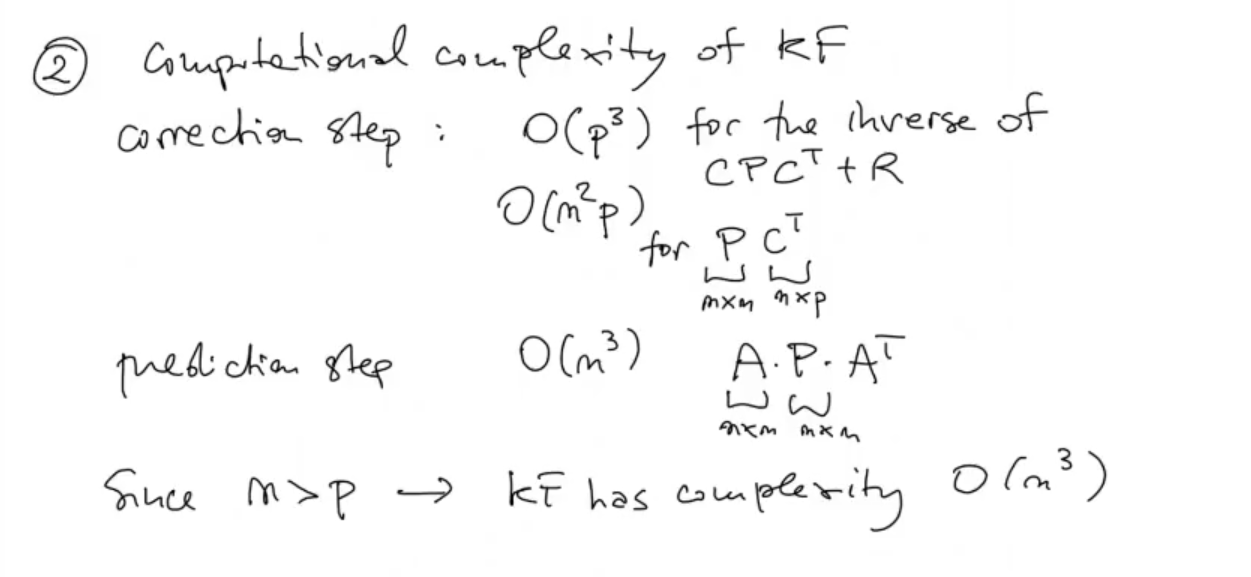 ② Computational complexity of KF
correction step : O(p³) for the inverse of
CPCᵀ + R
O(n²p)
for P Cᵀ
n×n n×p
prediction step O(n³) A·P·Aᵀ
n×n n×n
Since n>p → KF has complexity O(n³)